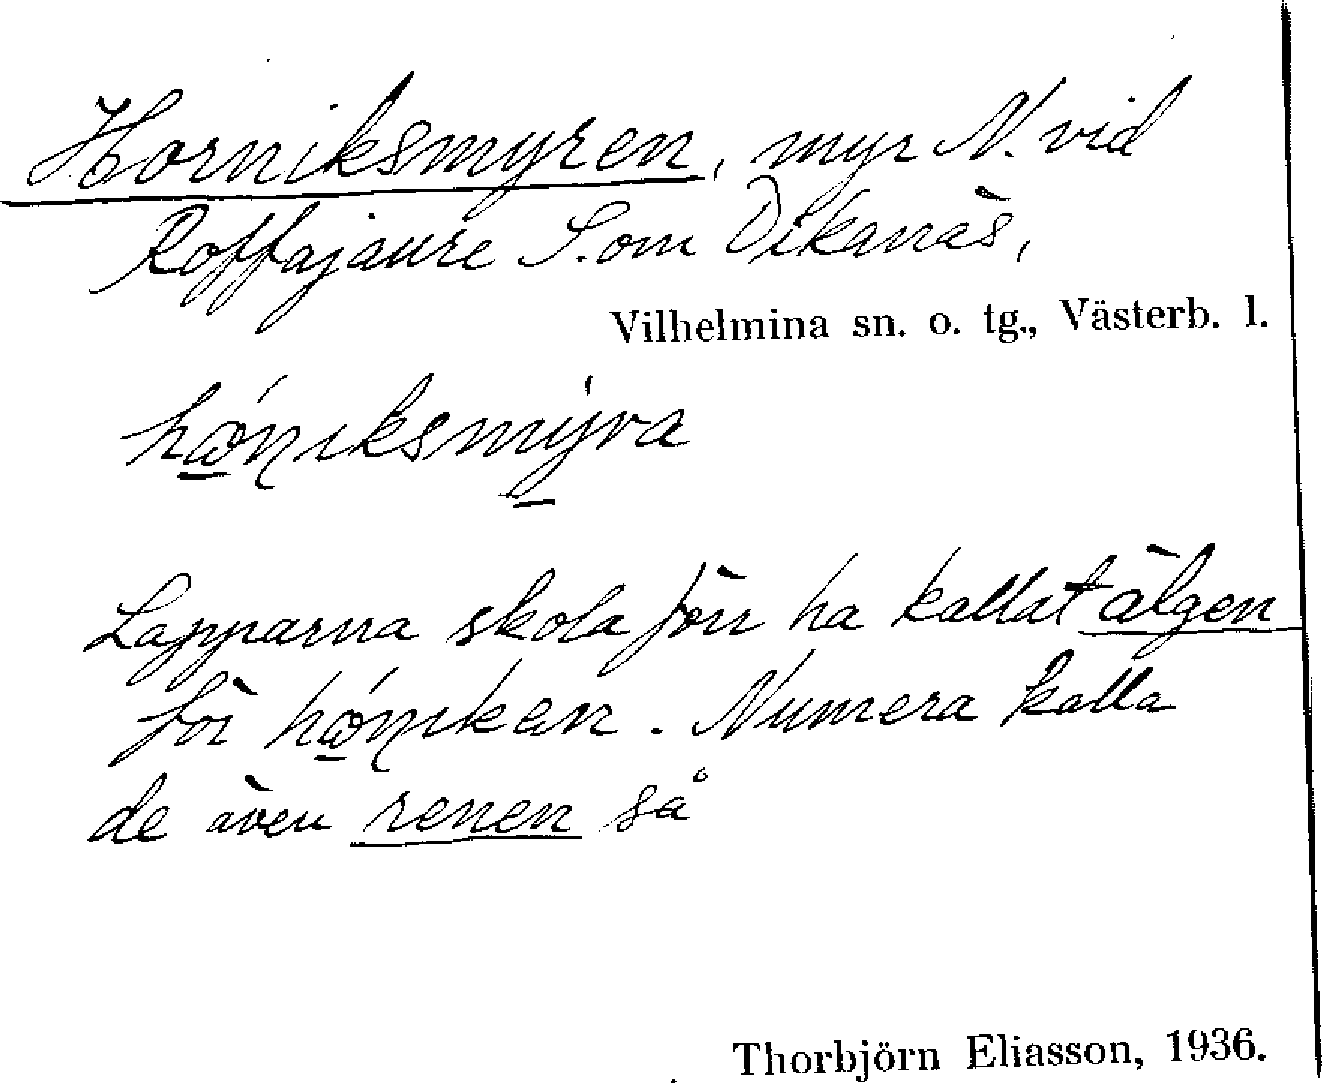 Horniksmyren, myr N. vid
Roffajaure S. om Dikanäs,
Vilhelmina sn. o. tg., Västerb. l.
hǫ́ṇıksmỳra
Lapparna skola förr ha kallat älgen
för hǫ́ṇıken. Numera kalla
de även renen så
Thorbjörn Eliasson, 1936.